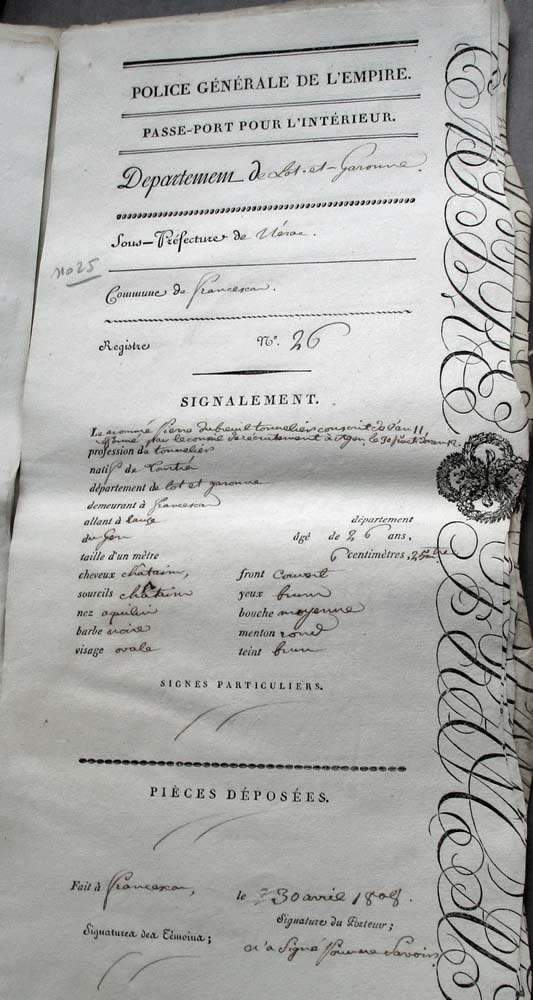 POLICE GÉNÉRALE DE L'EMPIRE.
PASSE-PORT POUR L'INTÉRIEUR.
Departement de Lot-et-Garonne.
Sous-Préfecture de Nérac.
no 25
Commune de francescas.
Registre N°. 26
SIGNALEMENT.
Le nommé Pierre dubreuil tonnelier conscrit de l'an 11,
réformé par le conseil de recrutement à Agen, le 30
profession de tonnelier
natif de
département de lot et garonne
demeurant à francescas
allant à département
du Gers âgé de 26 ans,
taille d'un mètre 6 centimètres,
cheveux châtains, front couvert
sourcils châtains yeux bruns
nez aquilin bouche moyenne
barbe noire menton rond
visage ovale teint brun
SIGNES PARTICULIERS.
PIÈCES DÉPOSÉES.
Fait à francescas, le 30 avril 1808.
Signatures des Témoins; Signature du Porteur;
n'a Signé pour ne Savoir